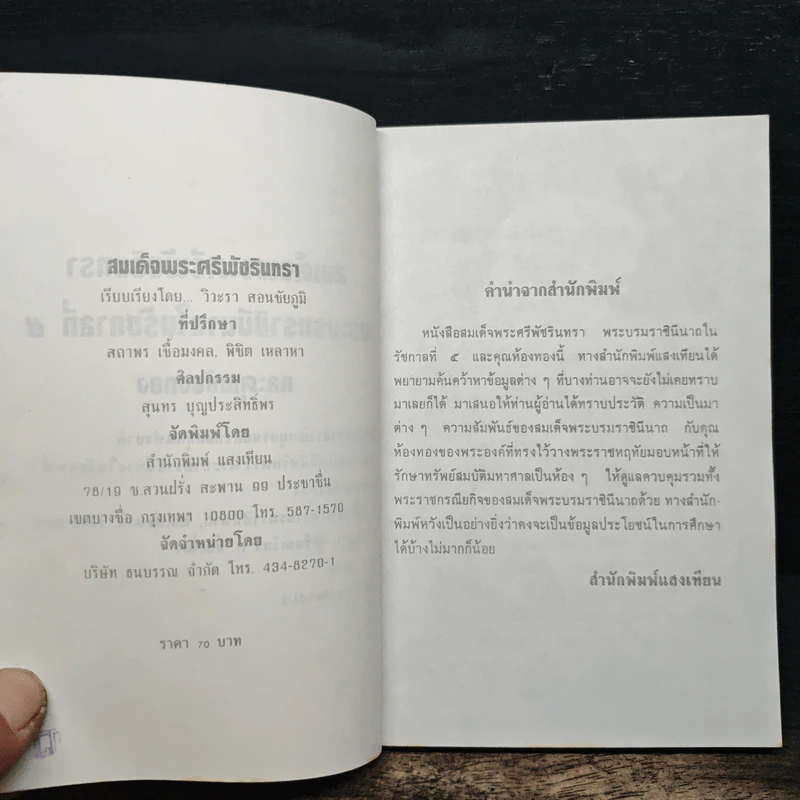 สมเด็จพระศรีพัชรินทรา
เรียบเรียงโดย... วิวะรา สอนชัยภูมิ
ที่ปรึกษา
สถาพร เชื้อมงคล, พิชิต เหลาหา
ศิลปกรรม
สุนทร บุญประสิทธิ์พร
จัดพิมพ์โดย
สำนักพิมพ์ แสงเทียน
78/19 ข.สวนฝรั่ง สะพาน 99 ประชาชื่น
เขตบางซื่อ กรุงเทพฯ 10800 โทร. 587-1570
จัดจำหน่ายโดย
บริษัท ธนบรรณ จำกัด โทร. 434-8270-1
ราคา 70 บาท
คำนำจากสำนักพิมพ์
หนังสือสมเด็จพระศรีพัชรินทรา พระบรมราชินีนาถใน
รัชกาลที่ ๕ และคุณห้องทองนี้ ทางสำนักพิมพ์แสงเทียนได้
พยายามค้นคว้าหาข้อมูลต่าง ๆ ที่บางท่านอาจจะยังไม่เคยทราบ
มาเลยก็ได้ มาเสนอให้ท่านผู้อ่านได้ทราบประวัติ ความเป็นมา
ต่าง ๆ ความสัมพันธ์ของสมเด็จพระบรมราชินีนาถ กับคุณ
ห้องทองของพระองค์ที่ทรงไว้วางพระราชหฤทัยมอบหน้าที่ให้
รักษาทรัพย์สมบัติมหาศาลเป็นห้อง ๆ ให้ดูแลควบคุมรวมทั้ง
พระราชกรณียกิจของสมเด็จพระบรมราชินีนาถด้วย ทางสำนัก-
พิมพ์หวังเป็นอย่างยิ่งว่าคงจะเป็นข้อมูลประโยชน์ในการศึกษา
ได้บ้างไม่มากก็น้อย
สำนักพิมพ์แสงเทียน